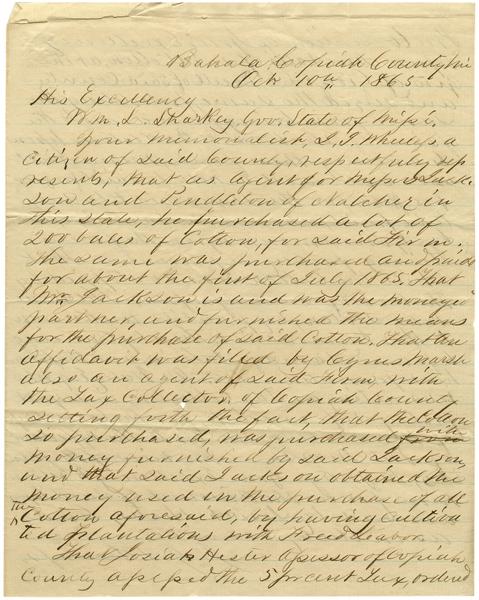 Bahala, Copiah County Mi
Oct 10th 1865
His Excellency
Wm. L. Sharkey, Gov. State of Missi.
Your memorialist, L. T. Wheless a
citizen of said County, respectfully rep
resents, that as agent for Messrs Jack-
son and Pendleton of Natchez in
this State, he purchased a lot of
200 bales of Cotton, for said Firm.
The same was purchased and paid
for about the first of July 1865. That
Mr. Jackson is and was the moneyed
partner, and furnished the means
for the purchase of said Cotton. That an
affidavit was filed by Cyrus Marsh
also an agent of said Firm, with
the Tax Collector, of Copiah County
setting forth the fact, that the Cotton
so purchased, was purchased with
money furnished by said Jackson,
and that said Jackson obtained the
money used in the purchase of all
the Cotton aforesaid, by having cultiva
ted plantations with Freed labor.
That Josiah Hester assessor of Copiah
County assessed the 5 pr cent Tax, ordered